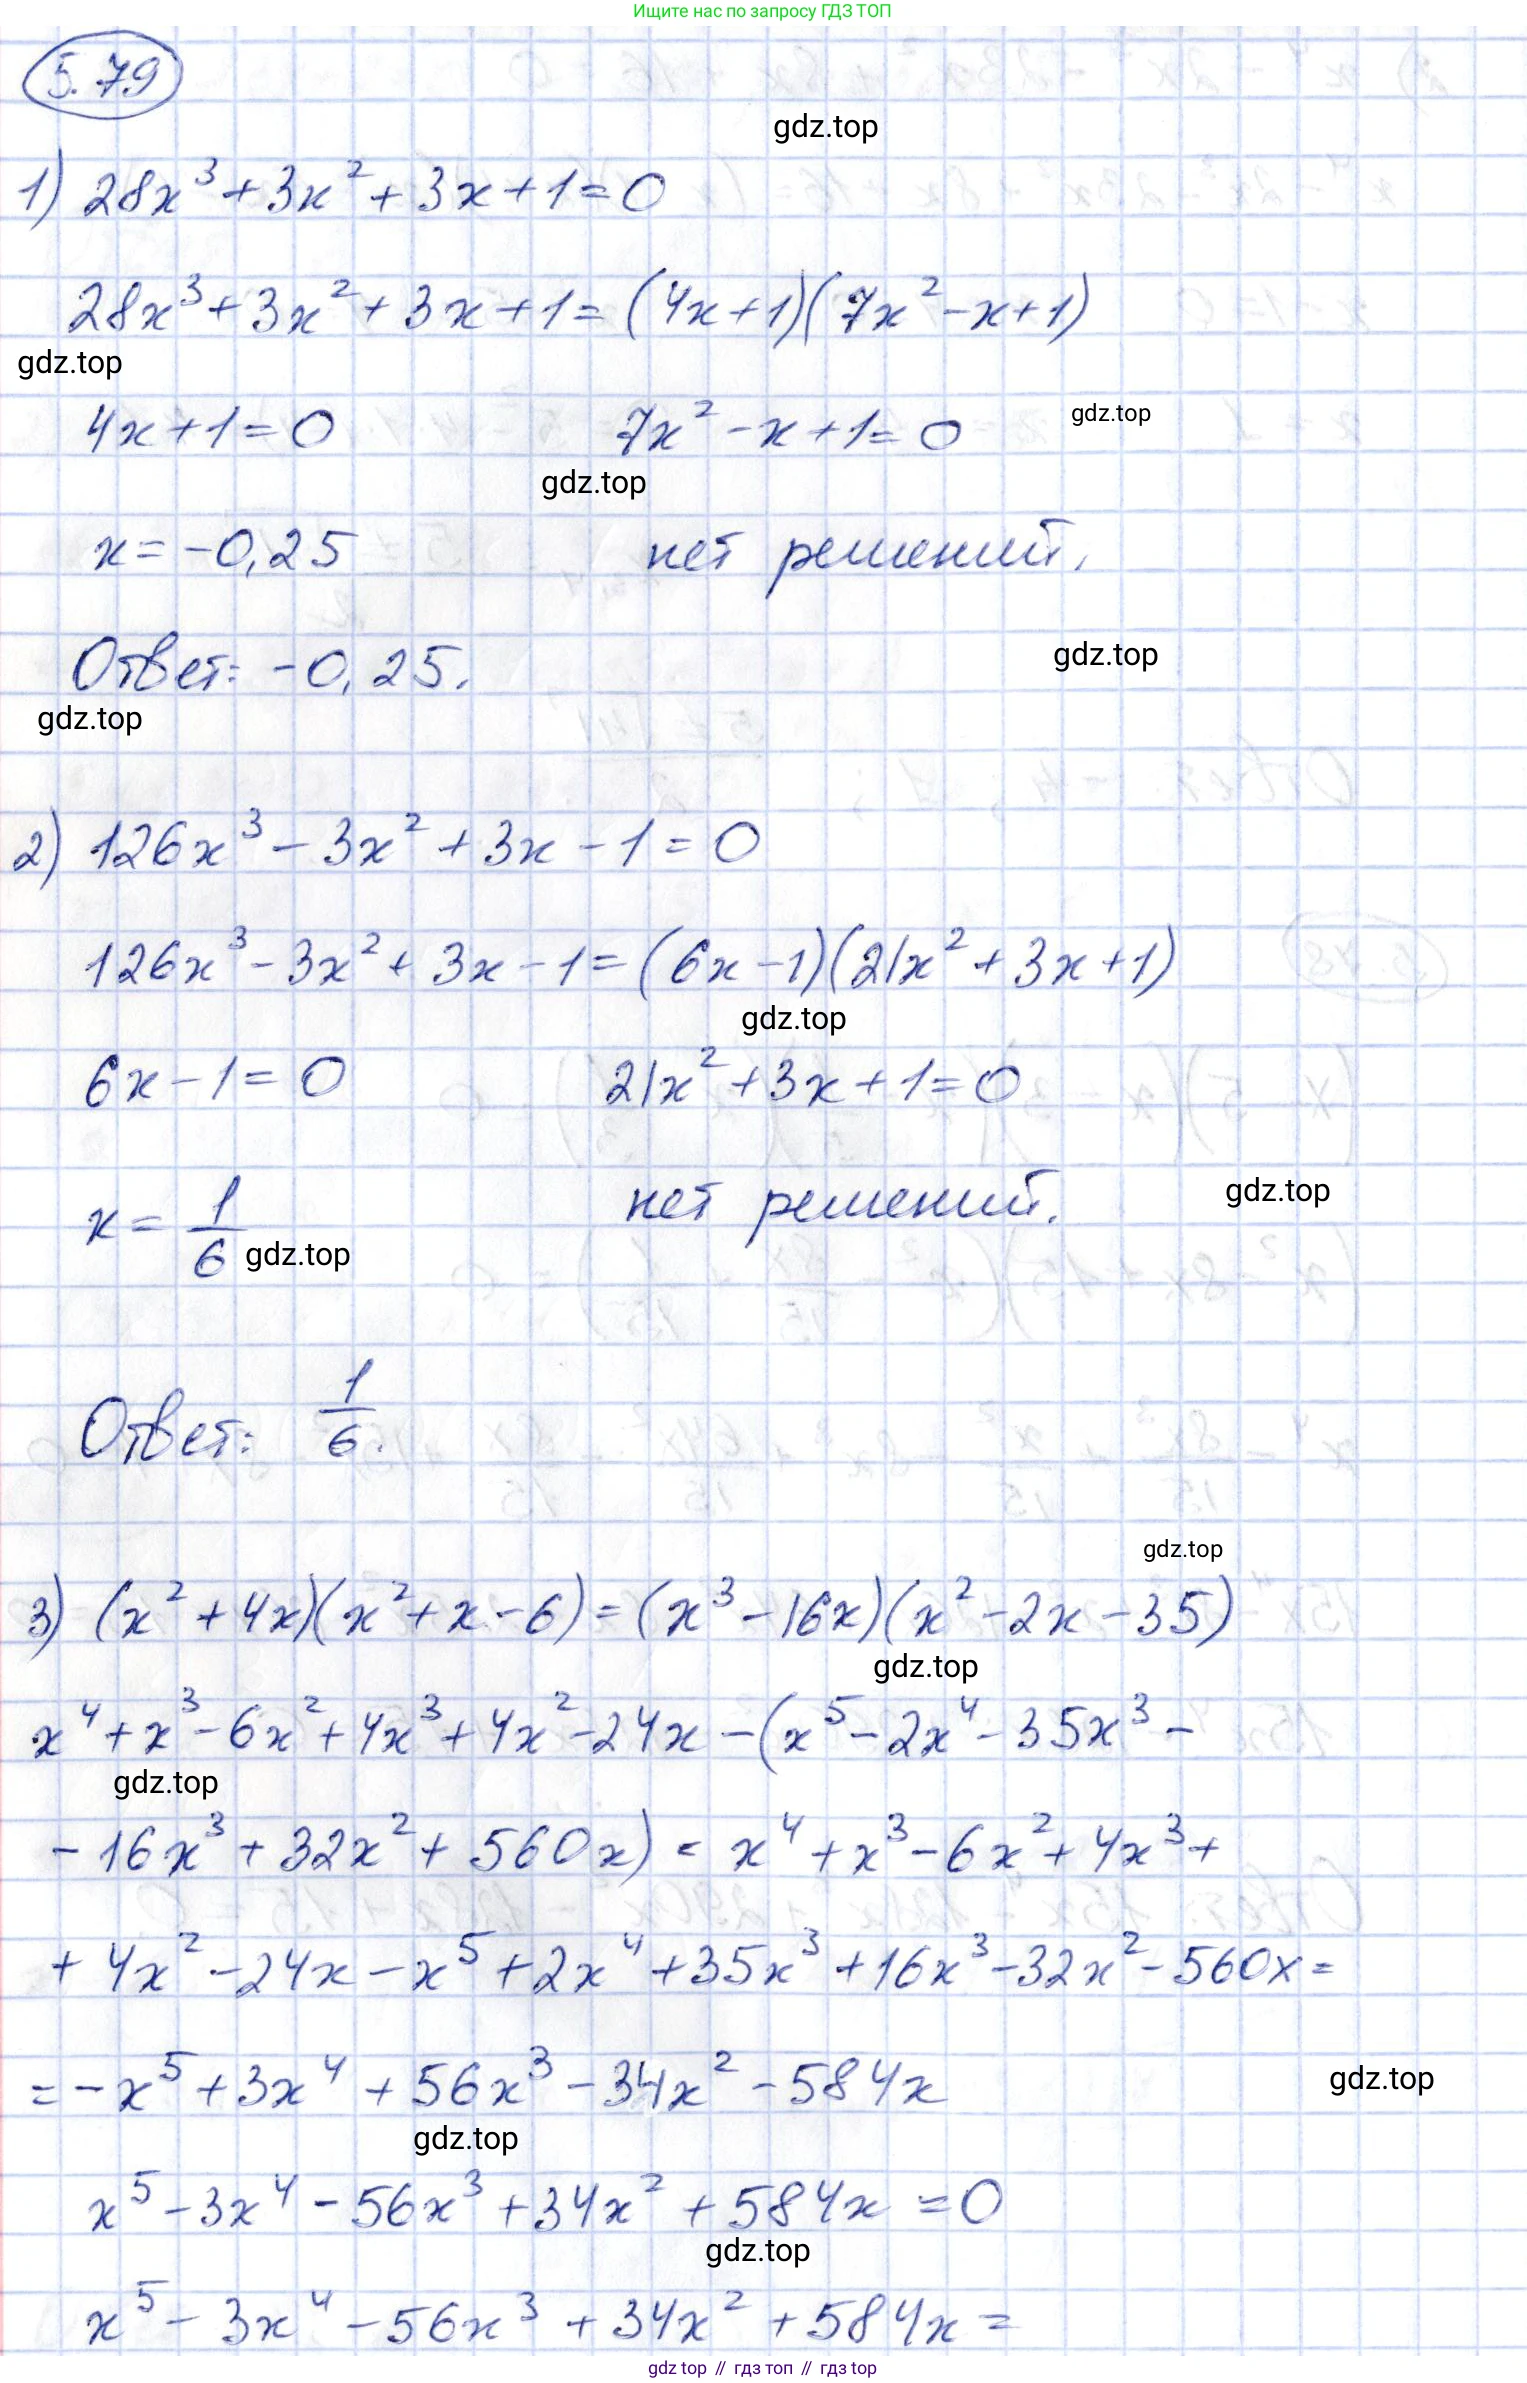 Ищите нас по запросу ГДЗ ТОП
5.79
gdz.top
1) 28x³ + 3x² + 3x + 1 = 0
28x³ + 3x² + 3x + 1 = (4x + 1)(7x² - x + 1)
gdz.top
4x + 1 = 0 7x² - x + 1 = 0 gdz.top
gdz.top
x = -0,25 нет решений.
Ответ: -0,25. gdz.top
gdz.top
2) 126x³ - 3x² + 3x - 1 = 0
126x³ - 3x² + 3x - 1 = (6x - 1)(21x² + 3x + 1)
gdz.top
6x - 1 = 0 21x² + 3x + 1 = 0
x = 1/6 нет решений. gdz.top
gdz.top
Ответ: 1/6.
gdz.top
3) (x² + 4x)(x² + x - 6) = (x³ - 16x)(x² - 2x - 35)
gdz.top
x⁴ + x³ - 6x² + 4x³ + 4x² - 24x - (x⁵ - 2x⁴ - 35x³ -
gdz.top
- 16x³ + 32x² + 560x) = x⁴ + x³ - 6x² + 4x³ +
+ 4x² - 24x - x⁵ + 2x⁴ + 35x³ + 16x³ - 32x² - 560x =
= -x⁵ + 3x⁴ + 56x³ - 34x² - 584x gdz.top
gdz.top
x⁵ - 3x⁴ - 56x³ + 34x² + 584x = 0
gdz.top
x⁵ - 3x⁴ - 56x³ + 34x² + 584x =
gdz top // гдз топ // гдз top